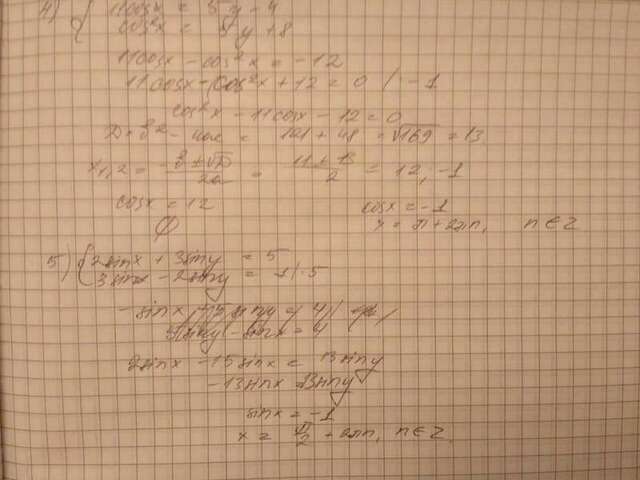 4) { 11cosx = 3y - 4
cos²x = 3y + 8
11cosx - cos²x = -12
11cosx - cos²x + 12 = 0 /· -1
cos²x - 11cosx - 12 = 0
D = b² - 4ac = 121 + 48 = √169 = 13
x₁,₂ = -b ± √D / 2a = 11 ± 13 / 2 = 12, -1
cosx = 12 cosx = -1
∅ x = π + 2πn, n ∈ Z
5) { 2sinx + 3siny = 5
3sinx - 2siny = -1 /· 5
2sinx - 15sinx = 13siny
-13sinx = 13siny
sinx = -1
x = π/2 + 2πn, n ∈ Z